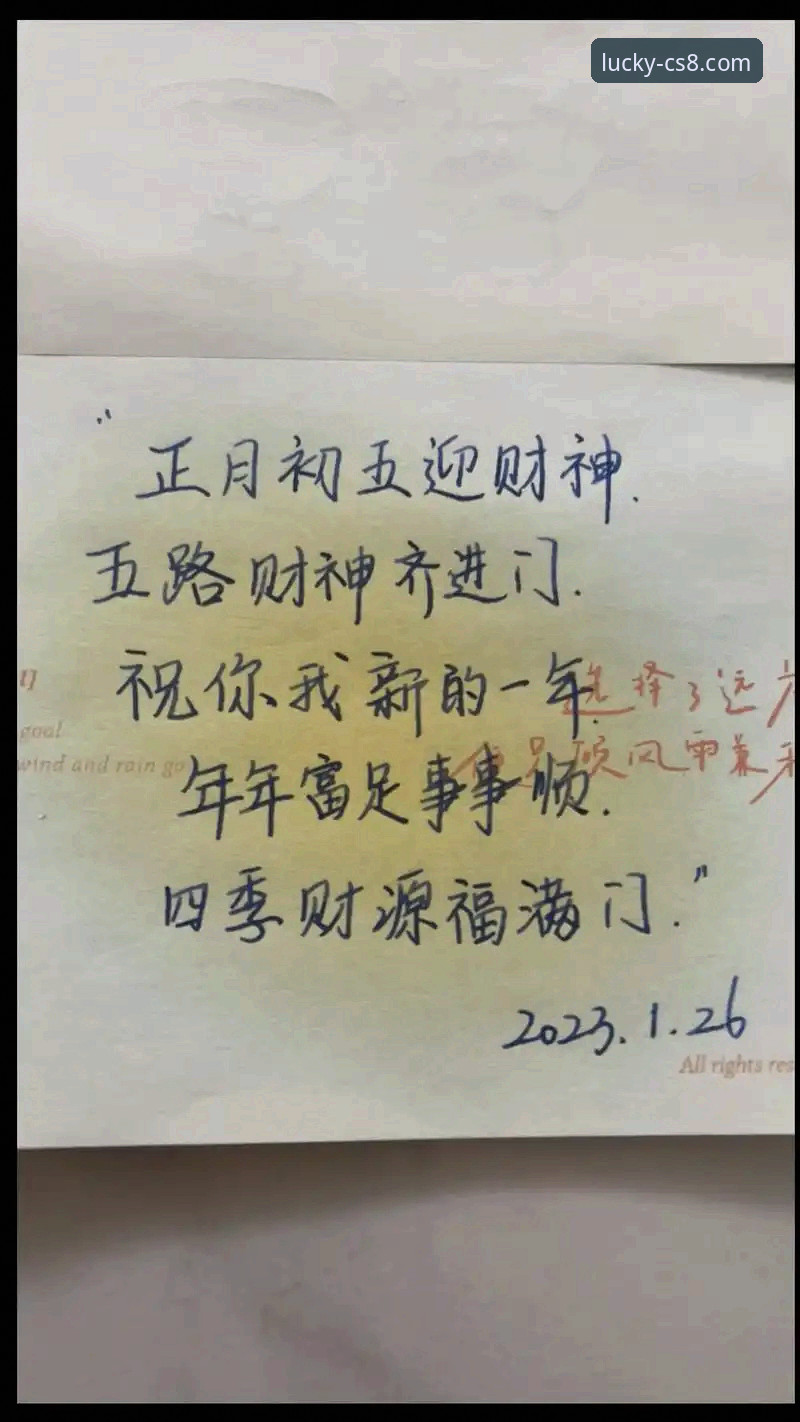 lucky-cs8.com
"
正月初五迎财神.
五路财神齐进门.
祝你我新的一年.
年年富足事事顺.
四季财源福满门."
2023.1.26
选择了远方
顾风雨兼
goal
wind and rain go
All rights res